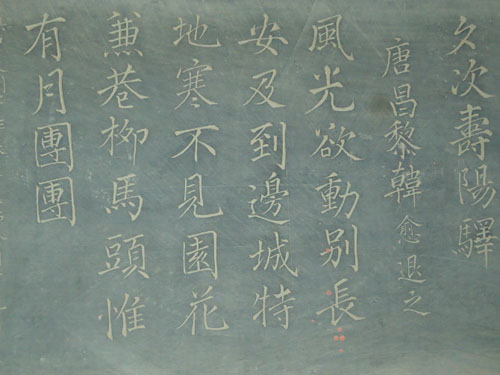 夕次壽陽驛
唐昌黎韓愈退之
風光欲動別長
安及到邊城特
地寒不見園花
兼巷柳馬頭惟
有月團團